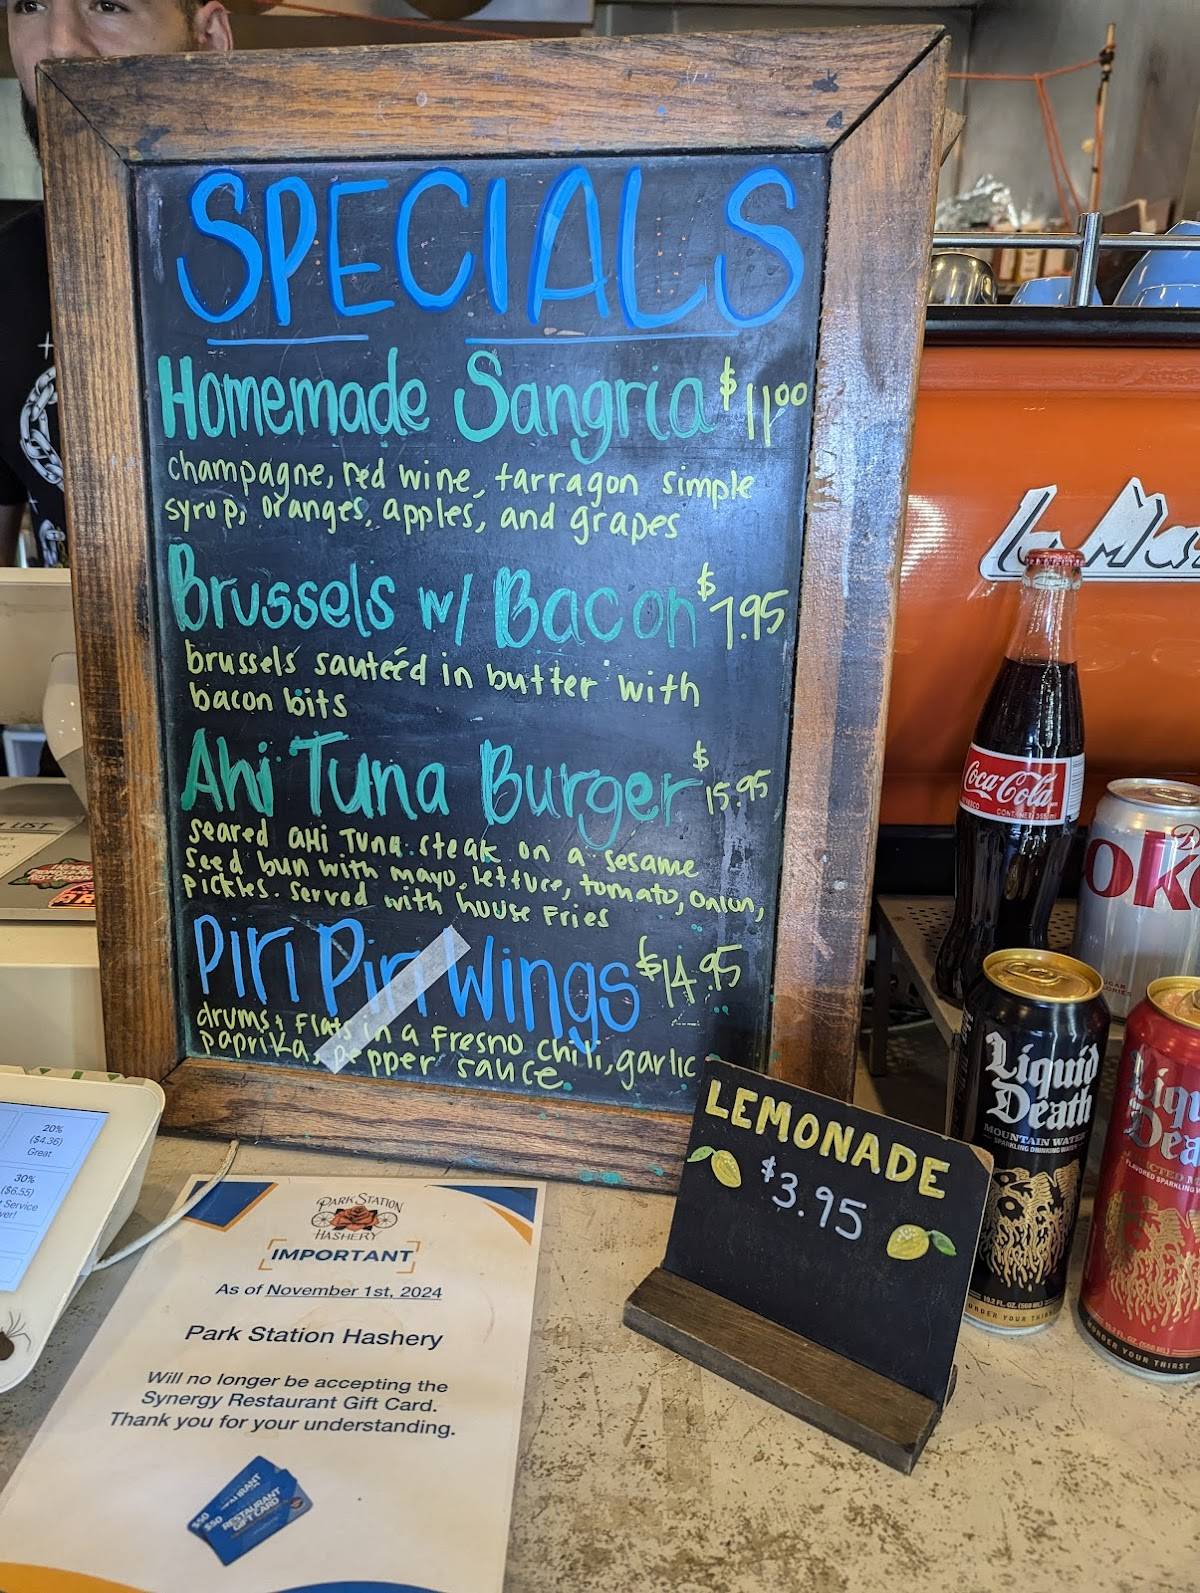 SPECIALS
Homemade Sangria $11.00
champagne, red wine, tarragon simple
syrup, oranges, apples, and grapes
Brussels w/ Bacon $7.95
brussels sautéed in butter with
bacon bits
Ahi Tuna Burger $15.95
seared aHi Tuna steak on a sesame
seed bun with mayo, lettuce, tomato, onion,
pickles. Served with house Fries
Piri Piri Wings $14.95
drums & Flats in a Fresno chili, garlic
paprika, pepper sauce
LEMONADE
$3.95
PARK STATION
HASHERY
IMPORTANT
As of November 1st, 2024
Park Station Hashery
Will no longer be accepting the
Synergy Restaurant Gift Card.
Thank you for your understanding.
$50
$50
RESTAURANT
GIFT CARD
20%
($4.36)
Great
30%
($6.55)
Service
LIST
La Mar
Coca-Cola
Liquid
Death
MOUNTAIN WATER
SPARKLING DRINKING WATER
19.2 FL. OZ. (568 ML)
MURDER YOUR THIRST